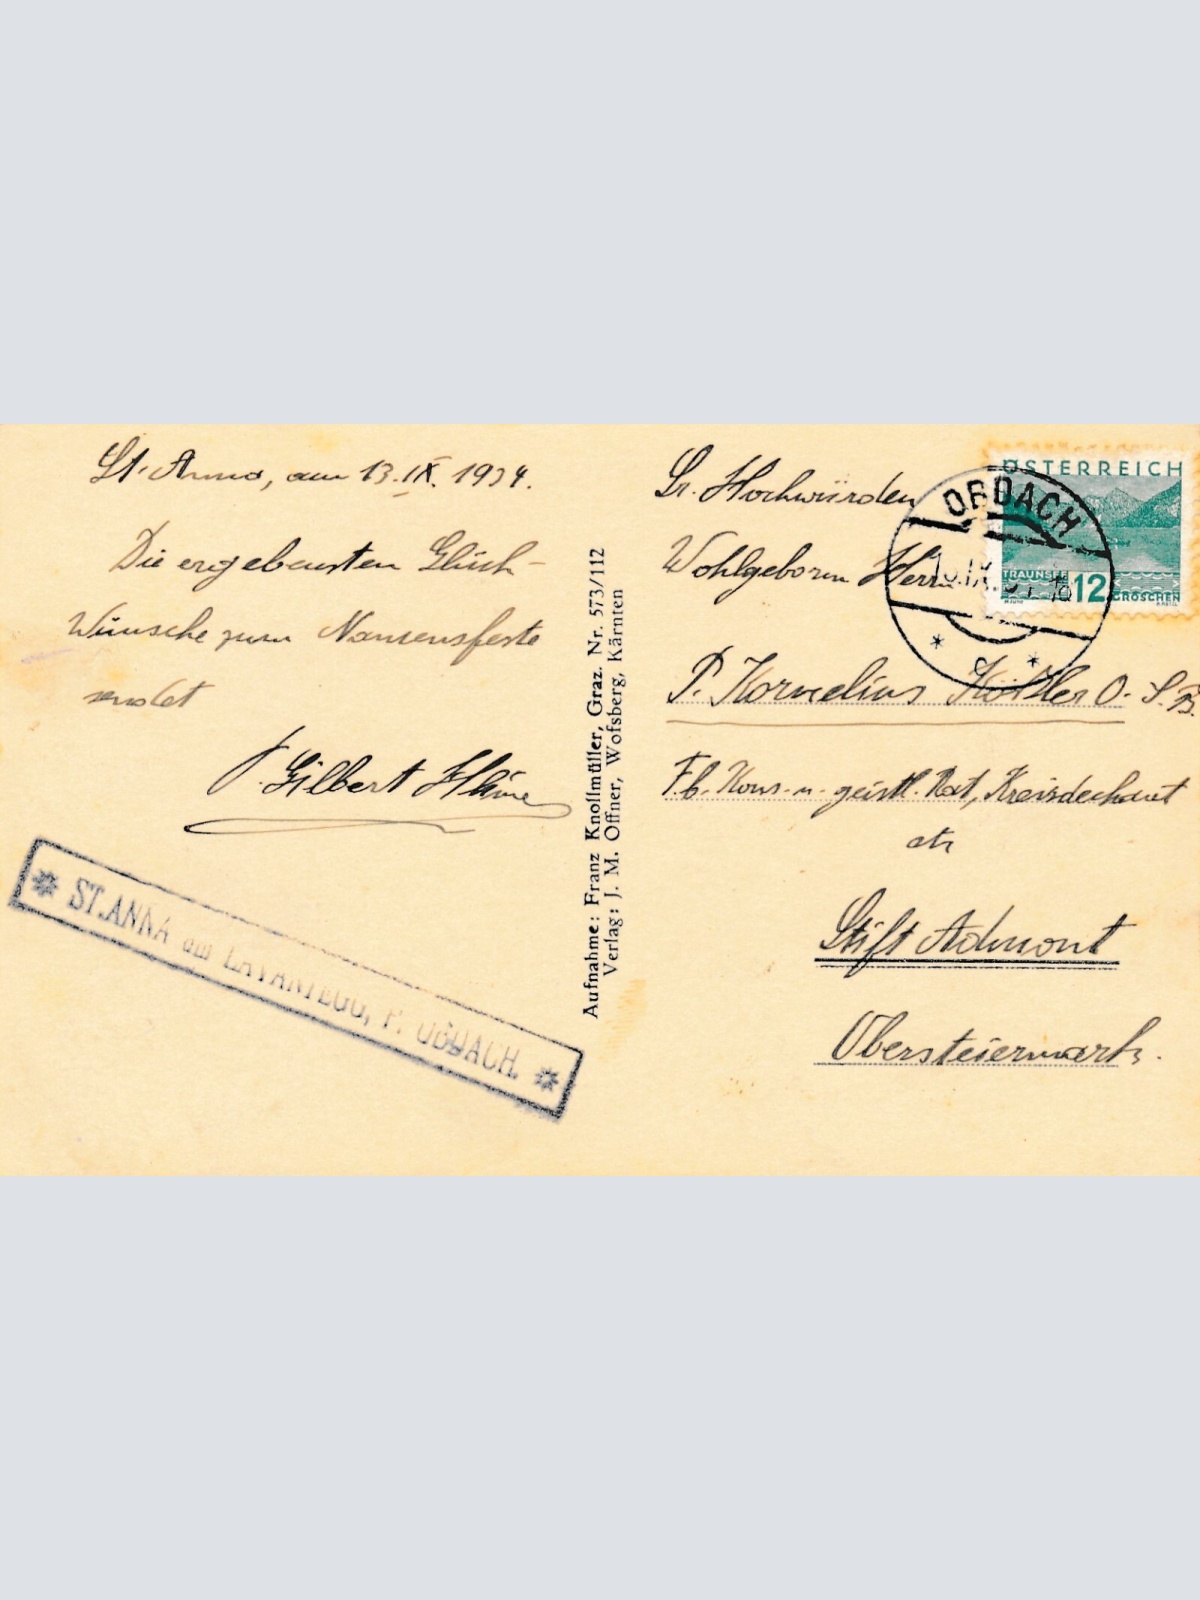 St. Anna, am 13.IX. 1934.
Die ergebensten Glück-
Wünsche zum Namensfeste
sendet
P. Gilbert
* ST.ANNA am LAVANTEGG, P. OBDACH. *
Aufnahme: Franz Knollmüller, Graz. Nr. 573/112
Verlag: J. M. Offner, Wofsberg, Kärnten
Sr. Hochwürden
Wohlgeborn Herrn
P. Kornelius O. S. B.
F.b. Kons. u. geistl. Rat, Kreisdechant
etz
Stift Admont
Obersteiermark.
ÖSTERREICH
TRAUNSEE 12 GROSCHEN
OBDACH